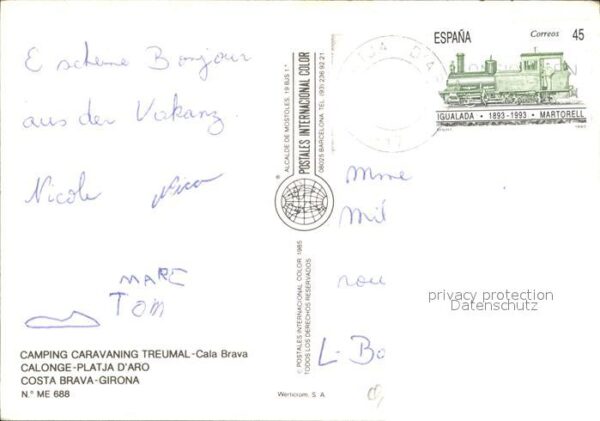 E scheine Bonjour
aus der Vakanz
Nicole
MARC
TOM
CAMPING CARAVANING TREUMAL-Cala Brava
CALONGE-PLATJA D'ARO
COSTA BRAVA-GIRONA
N.° ME 688
ALCALDE DE MOSTOLES, 19 BJS 1.ª
POSTALES INTERNACIONAL COLOR
08025 BARCELONA. TEL. (93) 236 92 21
© POSTALES INTERNACIONAL COLOR 1985
TODOS LOS DERECHOS RESERVADOS
Werticrom, S. A.
ESPAÑA Correos 45
IGUALADA • 1893-1993 • MARTORELL
PLATJA D'A
Mme
Mil
rou
L-Bo
privacy protection
Datenschutz